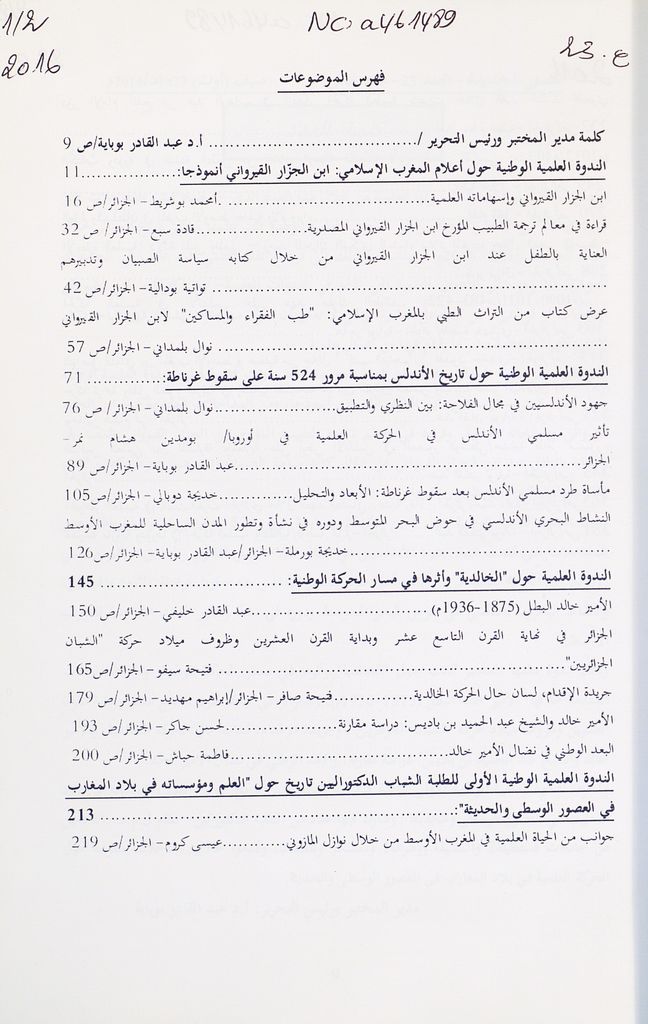 1/2
NC: a461489
2016
فهرس الموضوعات
كلمة مدير المختبر ورئيس التحرير /................................ أ.د عبد القادر بوباية/ص 9
الندوة العلمية الوطنية حول أعلام المغرب الإسلامي: ابن الجزّار القيرواني أنموذجا:..............11
ابن الجزار القيرواني وإسهاماته العلمية............................أمحمد بوشريط- الجزائر/ص 16
قراءة في معالم ترجمة الطبيب المؤرخ ابن الجزار القيرواني المصدرية...................قادة سبع- الجزائر/ ص 32
العناية بالطفل عند ابن الجزار القيرواني من خلال كتابه سياسة الصبيان وتدبيرهم
................................................................ تواتية بودالية- الجزائر/ص 42
عرض كتاب من التراث الطبي بالمغرب الإسلامي: "طب الفقراء والمساكين" لابن الجزار القيرواني
................................................................ نوال بلمداني- الجزائر/ص 57
الندوة العلمية الوطنية حول تاريخ الأندلس بمناسبة مرور 524 سنة على سقوط غرناطة:............. 71
جهود الأندلسيين في مجال الفلاحة: بين النظري والتطبيق....................نوال بلمداني- الجزائر/ ص 76
تأثير مسلمي الأندلس في الحركة العلمية في أوروبا/ بومدين هشام نمر-
الجزائر............................................................عبد القادر بوباية- الجزائر/ص 89
مأساة طرد مسلمي الأندلس بعد سقوط غرناطة: الأبعاد والتحليل..............خديجة دوبالي- الجزائر/ص105
النشاط البحري الأندلسي في حوض البحر المتوسط ودوره في نشأة وتطور المدن الساحلية للمغرب الأوسط
............................................خديجة بورملة- الجزائر/عبد القادر بوباية- الجزائر/ص126
الندوة العلمية حول "الخالدية" وأثرها في مسار الحركة الوطنية: ............................ 145
الأمير خالد البطل (1875-1936م) ............................عبد القادر خليفي- الجزائر/ص 150
الجزائر في نهاية القرن التاسع عشر وبداية القرن العشرين وظروف ميلاد حركة "الشبان
الجزائريين"............................................................ فتيحة سيفو- الجزائر/ص165
جريدة الإقدام، لسان حال الحركة الخالدية................فتيحة صافر- الجزائر/إبراهيم مهديد- الجزائر/ص 179
الأمير خالد والشيخ عبد الحميد بن باديس: دراسة مقارنة....................لحسن جاكر- الجزائر/ص 193
البعد الوطني في نضال الأمير خالد........................................فاطمة حباش- الجزائر/ص 200
الندوة العلمية الوطنية الأولى للطلبة الشباب الدكتوراليين تاريخ حول "العلم ومؤسساته في بلاد المغارب
في العصور الوسطى والحديثة":............................................................ 213
جوانب من الحياة العلمية في المغرب الأوسط من خلال نوازل المازوني............عيسى كروم- الجزائر/ص 219